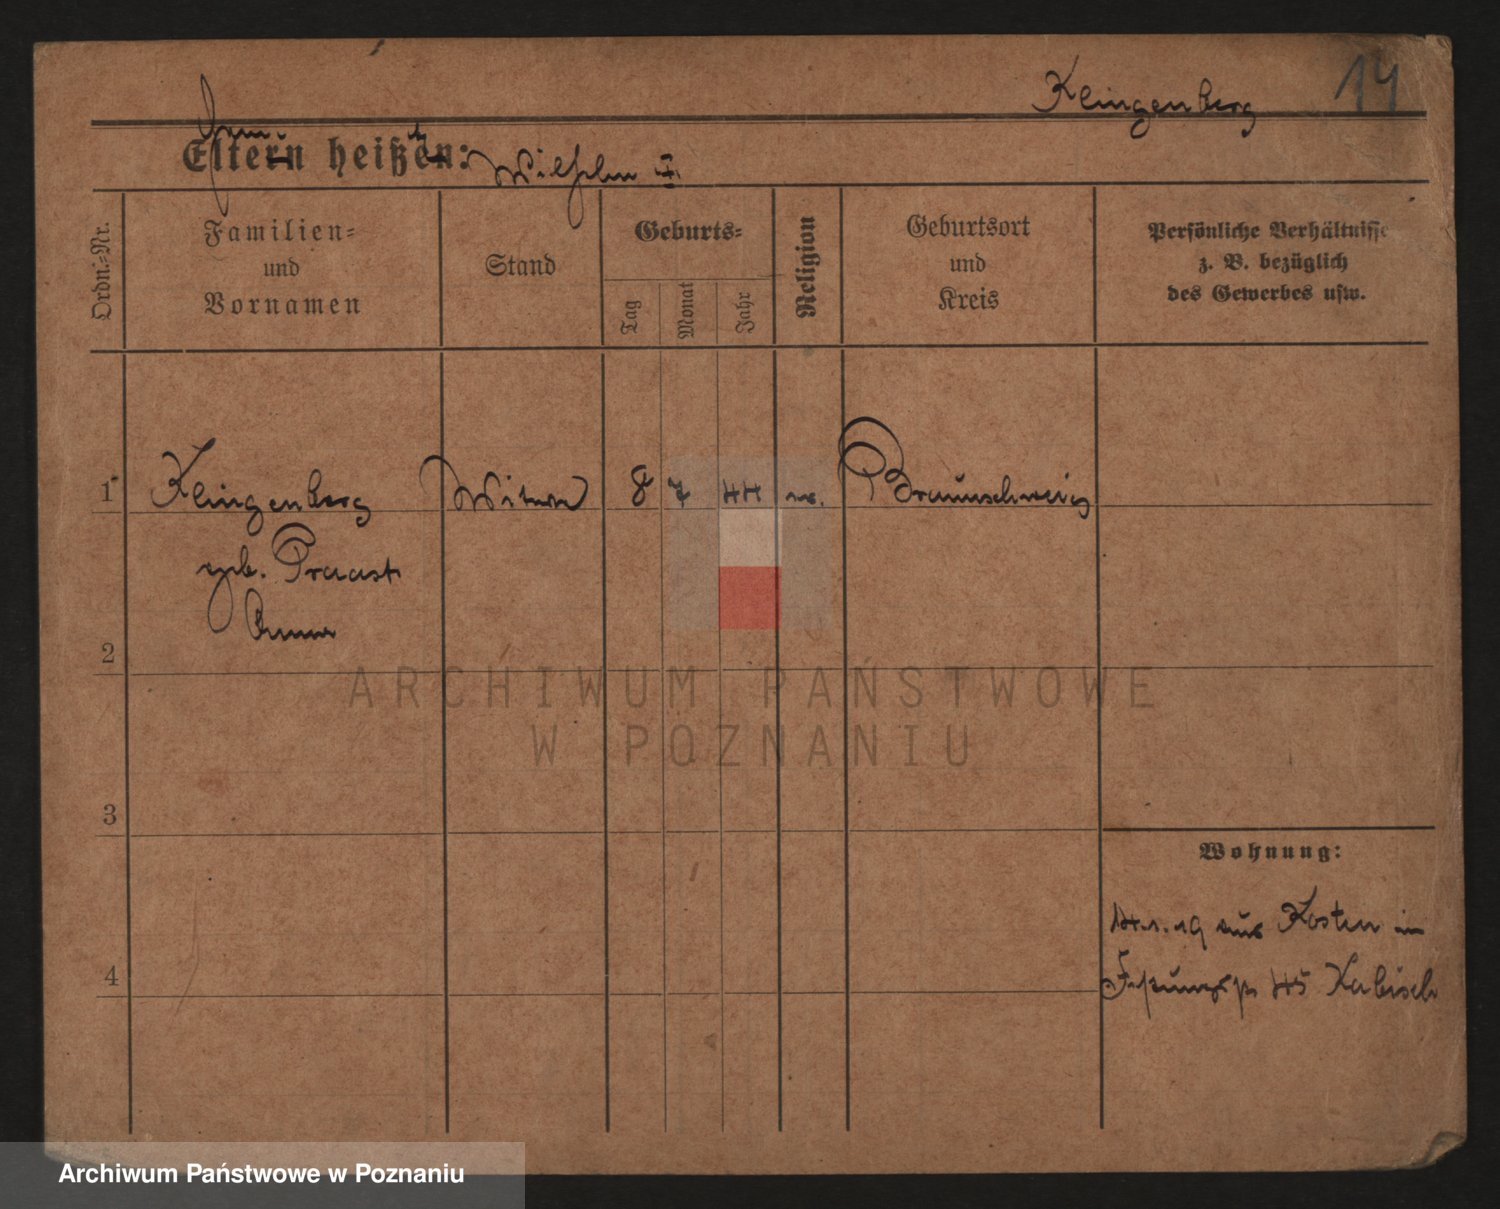 Klingenberg 14
Eltern heißen: Wilhelm I.
Ordn.-Nr.
Familien-
und
Vornamen
Stand
Geburts-
Tag
Monat
Jahr
Religion
Geburtsort
und
Kreis
Persönliche Verhältnisse
z. B. bezüglich
des Gewerbes usw.
1 Klingenberg Witwe 8 7 44 Braunschweig
geb. Praast
Anna
2
3
4
Wohnung:
14.1.19 aus Kosten in
45 Kabisch
ARCHIWUM PAŃSTWOWE
W POZNANIU
Archiwum Państwowe w Poznaniu